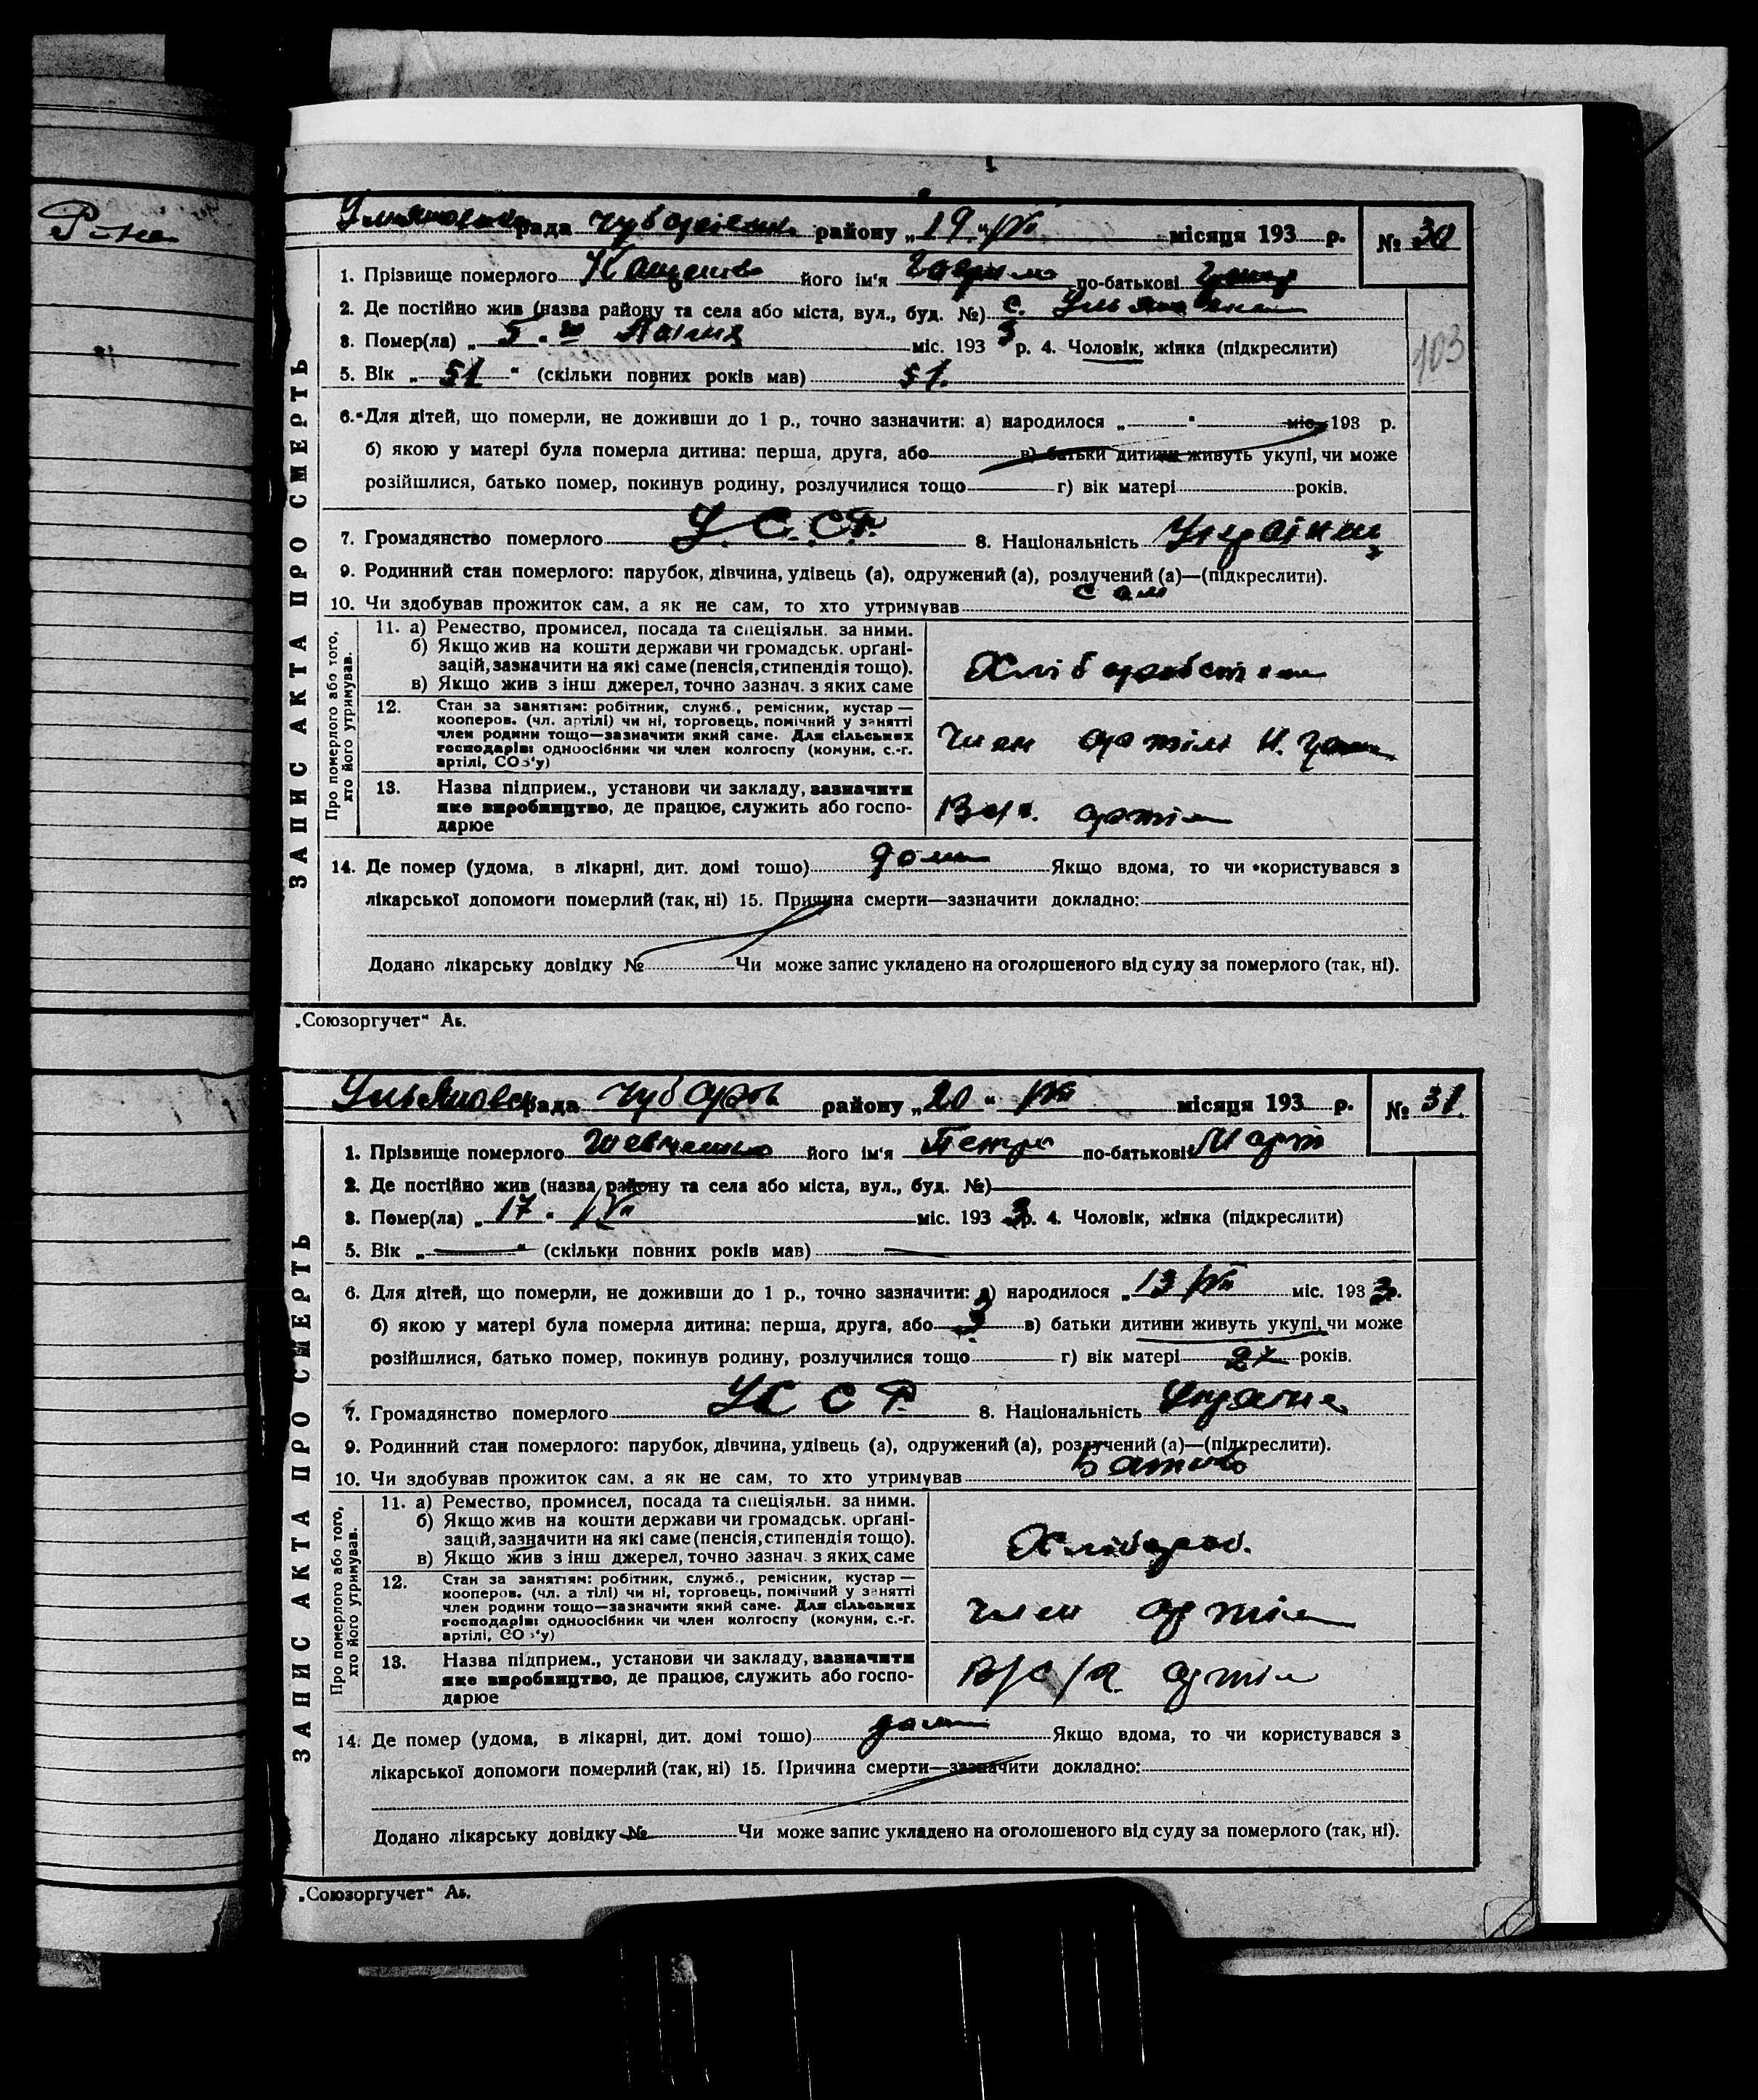 рада района „ 19 " місяця 193 р. № 30
1. Прізвище померлого його ім'я по-батькові
2. Де постійно жив (назва району та села або міста, вул., буд. №) с.
3. Помер(ла) „ 5 " міс. 193 3 р. 4. Чоловік, жінка (підкреслити)
5. Вік „ 51 " (скільки повних років мав) 51.
103
6. Для дітей, що померли, не доживши до 1 р., точно зазначити: а) народилося „ " міс. 193 р.
б) якою у матері була померла дитина: перша, друга, або в) батьки дитини живуть укупі, чи може
розійшлися, батько помер, покинув родину, розлучилися тощо г) вік матері років.
7. Громадянство померлого У.С.С.Р. 8. Національність Українец
9. Родинний стан померлого: парубок, дівчина, удівець (а), одружений (а), розлучений (а)—(підкреслити).
10. Чи здобував прожиток сам, а як не сам, то хто утримував сам
ЗАПИС АКТА ПРО СМЕРТЬ
Про померлого або того,
хто його утримував.
11. а) Ремество, промисел, посада та спеціяльн. за ними.
б) Якщо жив на кошти держави чи громадськ. орґані-
зацій, зазначити на які саме (пенсія, стипендія тощо).
в) Якщо жив з інш джерел, точно зазнач. з яких саме
12. Стан за заняттям: робітник, служб., ремісник, кустар —
кооперов. (чл. артілі) чи ні, торговець, помічний у занятті
член родини тощо—зазначити який саме. Для сільських
господарів: одноосібник чи член колгоспу (комуни, с.-г.
артілі, СОЗ'у)
член артілі
13. Назва підприєм., установи чи закладу, зазначити
яке виробництво, де працює, служить або госпо-
дарює
14. Де помер (удома, в лікарні, дит. домі тощо) дома Якщо вдома, то чи користувався з
лікарської допомоги померлий (так, ні) 15. Причина смерти—зазначити докладно:
Додано лікарську довідку № Чи може запис укладено на оголошеного від суду за померлого (так, ні).
„Союзоргучет" Аь.
рада Чубарів району „ 20 " місяця 193 р. № 31
1. Прізвище померлого Шевченко його ім'я Петро по-батькові Март
2. Де постійно жив (назва району та села або міста, вул., буд. №)
3. Помер(ла) „ 17 " міс. 193 3 р. 4. Чоловік, жінка (підкреслити)
5. Вік „ " (скільки повних років мав)
6. Для дітей, що померли, не доживши до 1 р., точно зазначити: а) народилося „ 13 міс. 193 3.
б) якою у матері була померла дитина: перша, друга, або 3 в) батьки дитини живуть укупі, чи може
розійшлися, батько помер, покинув родину, розлучилися тощо г) вік матері років.
7. Громадянство померлого УССР. 8. Національність
9. Родинний стан померлого: парубок, дівчина, удівець (а), одружений (а), розлучений (а)—(підкреслити).
10. Чи здобував прожиток сам, а як не сам, то хто утримував Батько
ЗАПИС АКТА ПРО СМЕРТЬ
Про померлого або того,
хто його утримував.
11. а) Ремество, промисел, посада та спеціяльн. за ними.
б) Якщо жив на кошти держави чи громадськ. орґані-
зацій, зазначити на які саме (пенсія, стипендія тощо).
в) Якщо жив з інш джерел, точно зазнач. з яких саме
Хлібороб.
12. Стан за заняттям: робітник, служб., ремісник, кустар —
кооперов. (чл. а тілі) чи ні, торговець, помічний у занятті
член родини тощо—зазначити який саме. Для сільських
господарів: одноосібник чи член колгоспу (комуни, с.-г.
артілі, СОЗ'у)
член артіл
13. Назва підприєм., установи чи закладу, зазначити
яке виробництво, де працює, служить або госпо-
дарює
артіл
14. Де помер (удома, в лікарні, дит. домі тощо) дома Якщо вдома, то чи користувався з
лікарської допомоги померлий (так, ні) 15. Причина смерти—зазначити докладно:
Додано лікарську довідку № Чи може запис укладено на оголошеного від суду за померлого (так, ні).
„Союзоргучет" Аь.